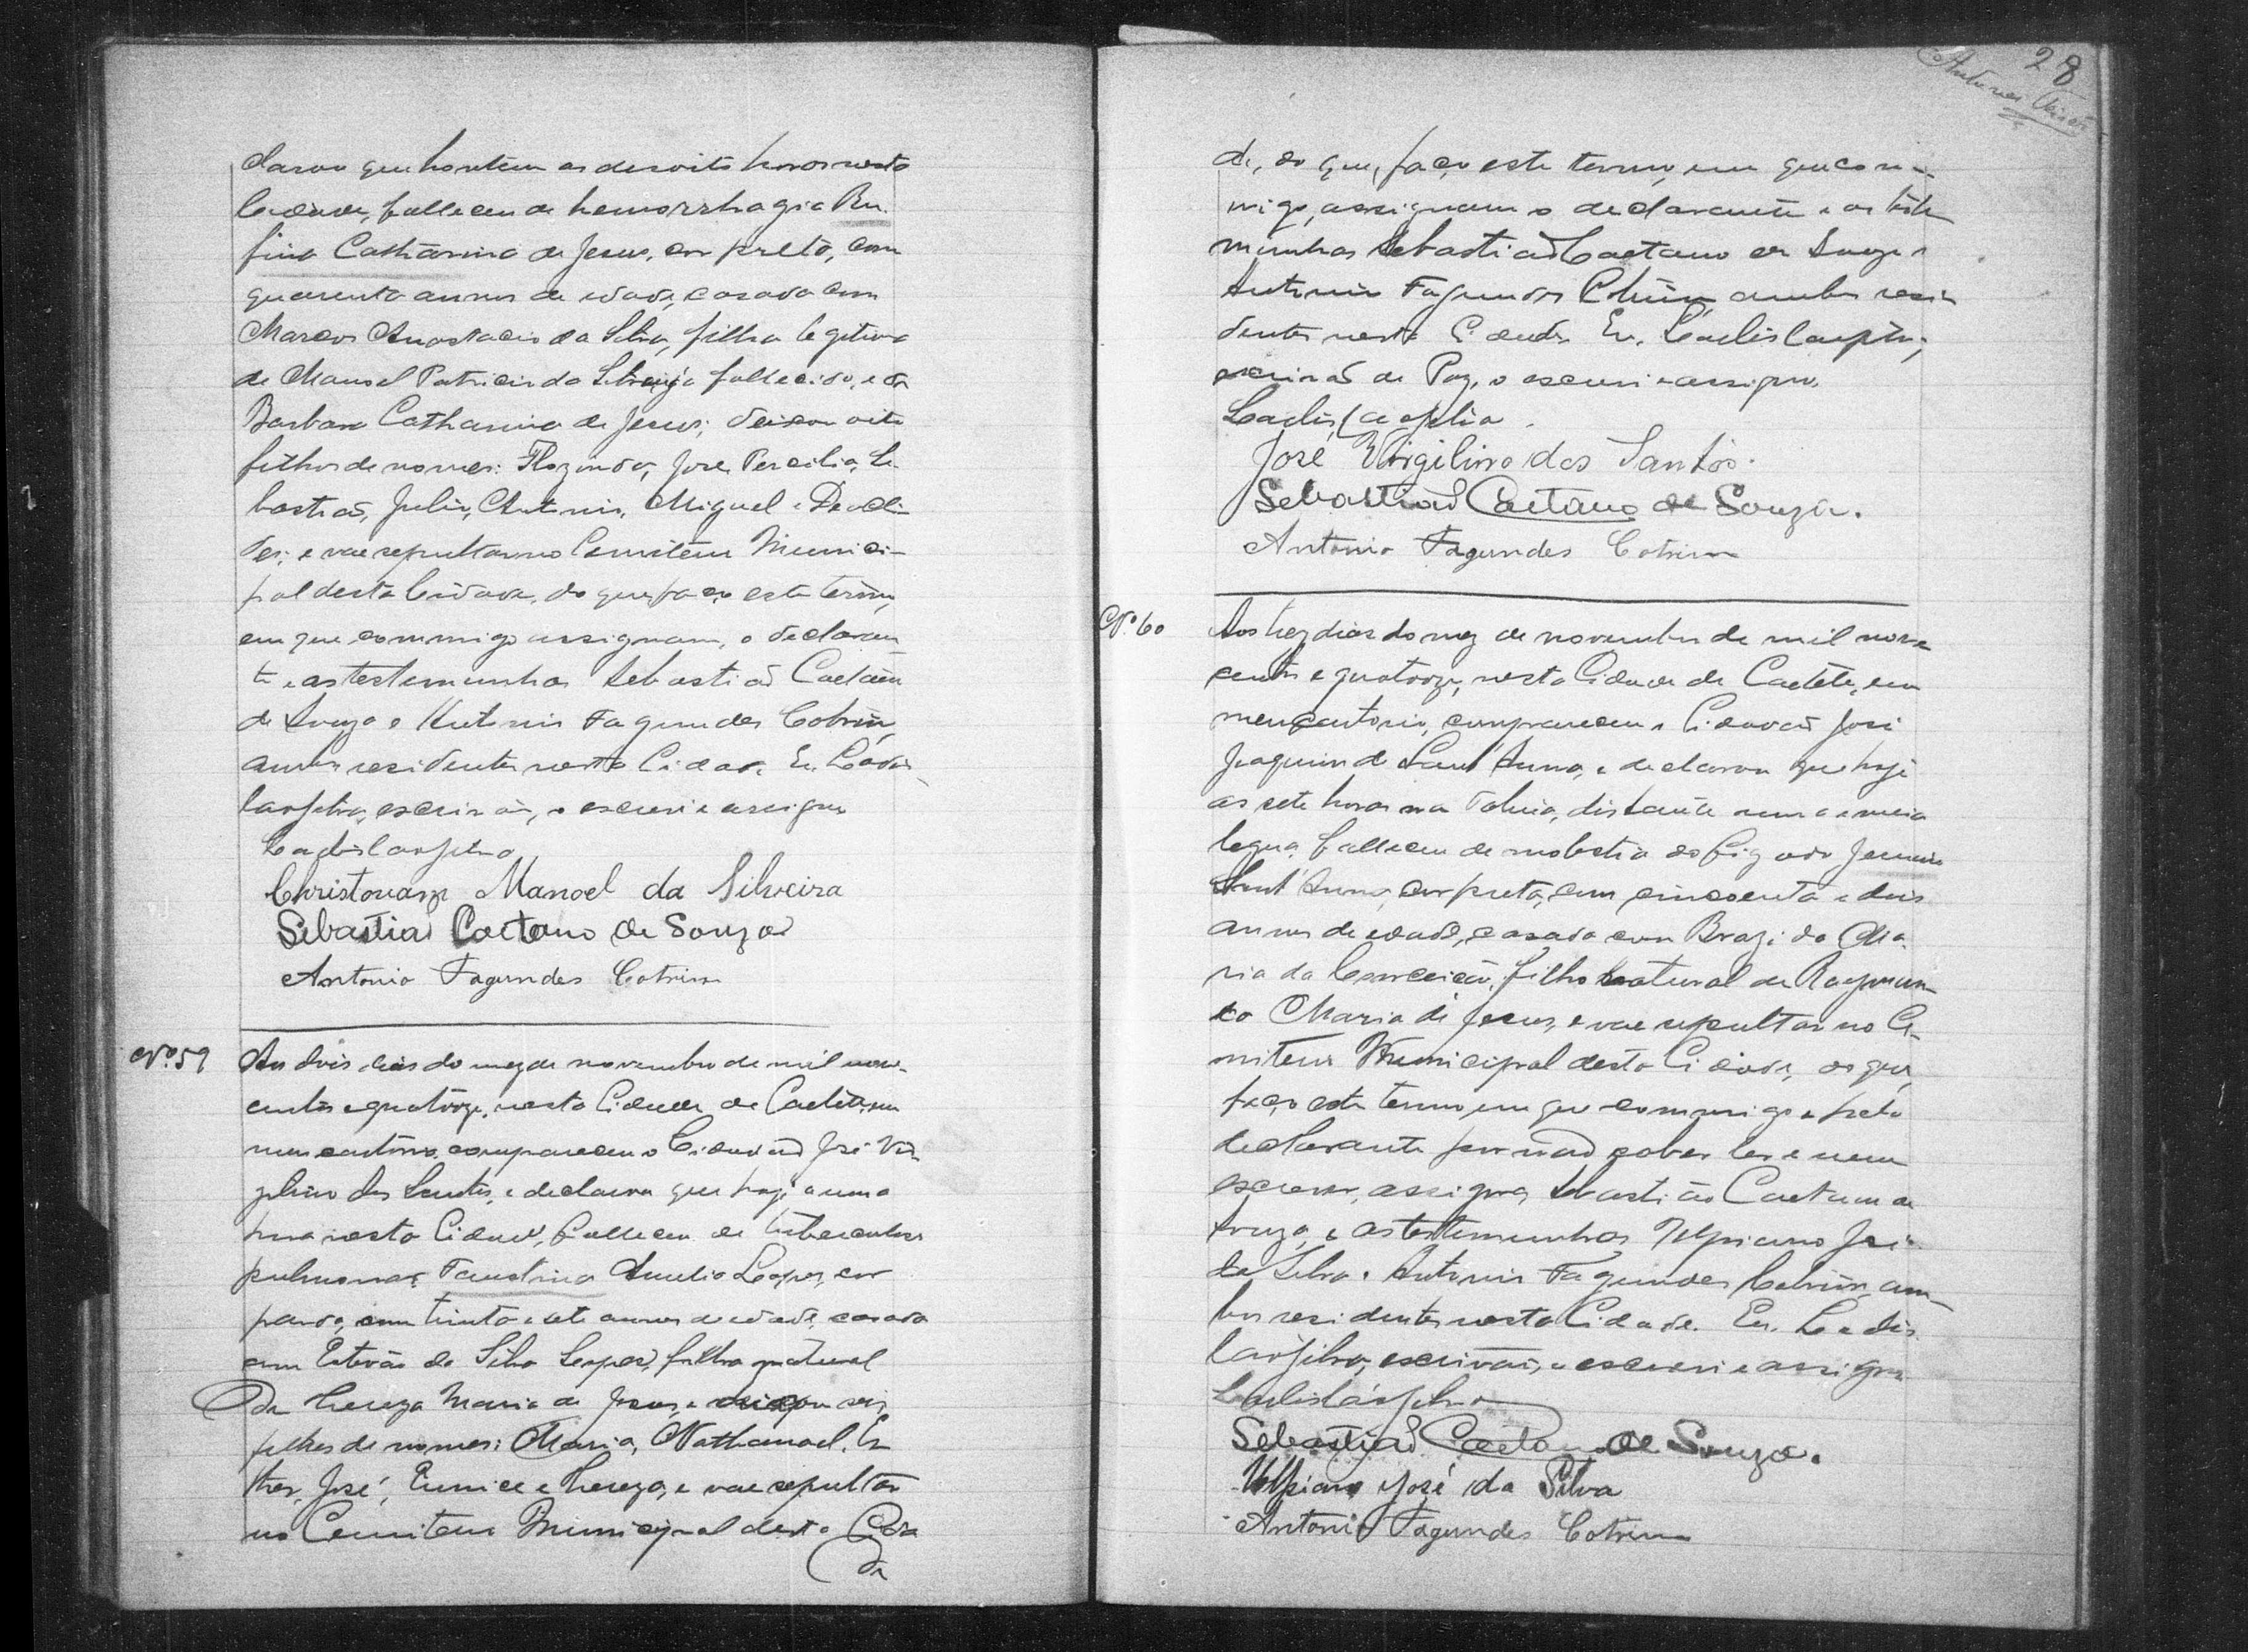 clarou que hontem as desoito horas nesta
Cidade, falleceu de hemorrhagia Ru-
fina Catharina de Jesus, cor preta, com
quarenta annos de edade, casada com
Marcos Anastacio da Silva, filha legitima
de Manoel Patricio da Silveira, fallecido, e de
Barbara Catharina de Jesus; deixou oito
filhos de nomes: José, Percilia, Se-
bastião, Julio, Antonio, Miguel e Deocli-
des; e vae sepultar no Cemiterio Munici-
pal desta Cidade, do que faço este termo,
em que commigo assignam, o declaran-
te e as testemunhas Sebastião Caetano
de Souza e Antonio Fagundes Cotrim,
ambos residentes nesta Cidade. Eu, Ladis-
lao Silva, escrivão, o escrevi e assigno
Ladislao Silva
Christovam Manoel da Silveira
Sebastião Caetano de Souza
Antonio Fagundes Cotrim
Nº 59 Aos dois dias do mez de novembro de mil nove-
centos e quatorze, nesta Cidade de Caeteté, em
meu cartorio, compareceu o Cidadão José Vir-
gilino dos Santos, e declarou que hoje a uma
hora nesta Cidade, falleceu de tuberculose
pulmonar Faustina Amelia Lopes, cor
parda, com trinta e sete annos de edade, casada
com Estevão da Silva Lopes, filha natural
de Thereza Maria de Jesus, e deixou seis
filhos de nomes: Maria, Nathanael, Es-
ther, José, Eunice e Thereza, e vae sepultar
no Cemiterio Municipal desta Cida
de
28
de, do que, faço este termo, em que com-
migo, assignam o declarante e as teste-
munhas Sebastião Caetano de Souza e
Antonio Fagundes Cotrim, ambos resi-
dentes nesta Cidade. Eu, Ladislao Silva,
escrivão de Paz, o escrevi e assigno.
Ladislao Silva.
José Virgilino dos Santos.
Sebastião Caetano de Souza.
Antonio Fagundes Cotrim
Nº 60 Aos trez dias do mez de novembro de mil nove
centos e quatorze, nesta Cidade de Caeteté, em
meu cartorio, compareceu o Cidadão José
Joaquim de Sant'Anna, e declarou que hoje
as sete horas na distante uma e meia
legua, falleceu de molestia do figado
Sant'Anna, cor preta, com cincoenta e dois
annos de edade, casado com Brazida Ma-
ria da Conceição, filho natural de Raymun-
da Maria de Jesus, e vae sepultar no Ce-
miterio Municipal desta Cidade, do que,
faço este termo em que commigo e pelo
declarante por não saber ler e nem
escrever, assigna, Sebastião Caetano de
Souza, e as testemunhas Ulpiano José
da Silva e Antonio Fagundes Cotrim, am-
bos residentes nesta Cidade. Eu, Ladis-
lao Silva, escrivão, o escrevi e assigno
Ladislao Silva
Sebastião Caetano de Souza.
Ulpiano José da Silva
Antonio Fagundes Cotrim